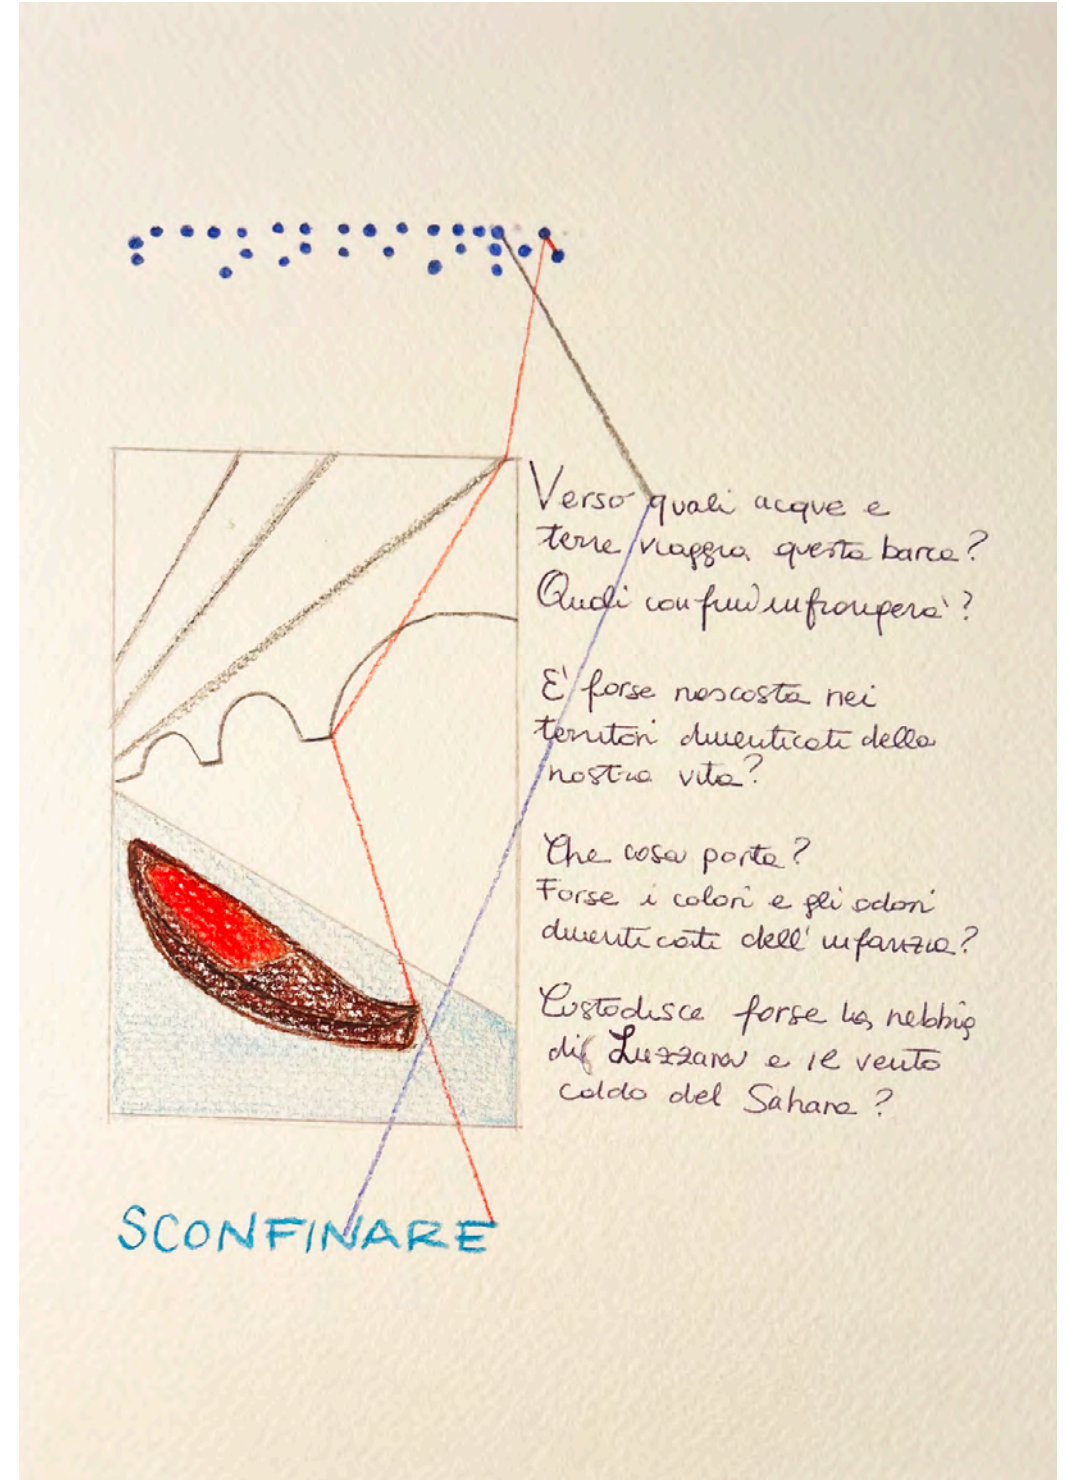 Verso quali acque e
terre viaggia questa barca?
Quali confini infrangerà?
E' forse nascosta nei
territori dimenticati della
nostra vita?
Che cosa porta?
Forse i colori e gli odori
dimenticati dell'infanzia?
Custodisce forse la nebbia
di Luzzara e il vento
caldo del Sahara?
SCONFINARE